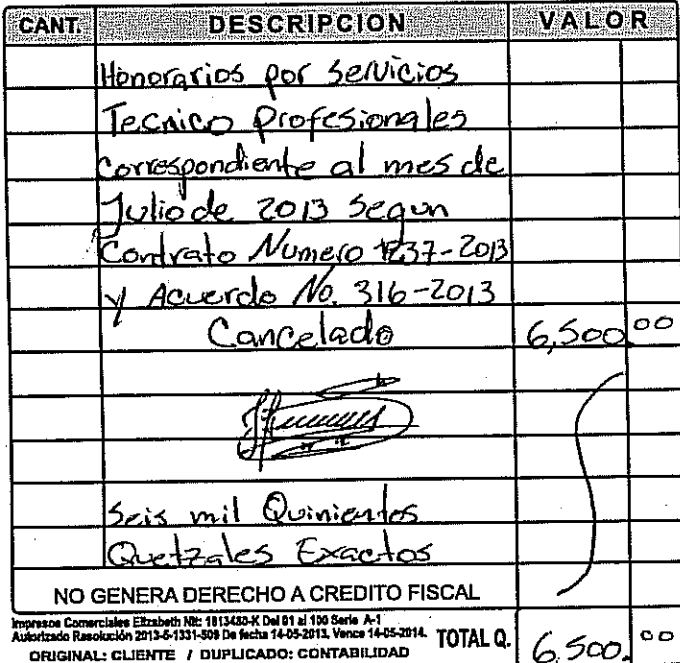 CANT. DESCRIPCION VALOR
Honorarios por Servicios
Tecnico Profesionales
Correspondiente al mes de
Julio de 2013 Segun
Contrato Numero 1237-2013
y Acuerdo No. 316-2013
Cancelado 6,500.00
Seis mil Quinientos
Quetzales Exactos
NO GENERA DERECHO A CREDITO FISCAL
Impresos Comerciales Elizabeth Nit: 1813480-K Del 01 al 100 Serie A-1
Autorizado Resolución 2013-5-1331-509 De fecha 14-05-2013. Vence 14-05-2014.
ORIGINAL: CLIENTE / DUPLICADO: CONTABILIDAD
TOTAL Q. 6,500.00